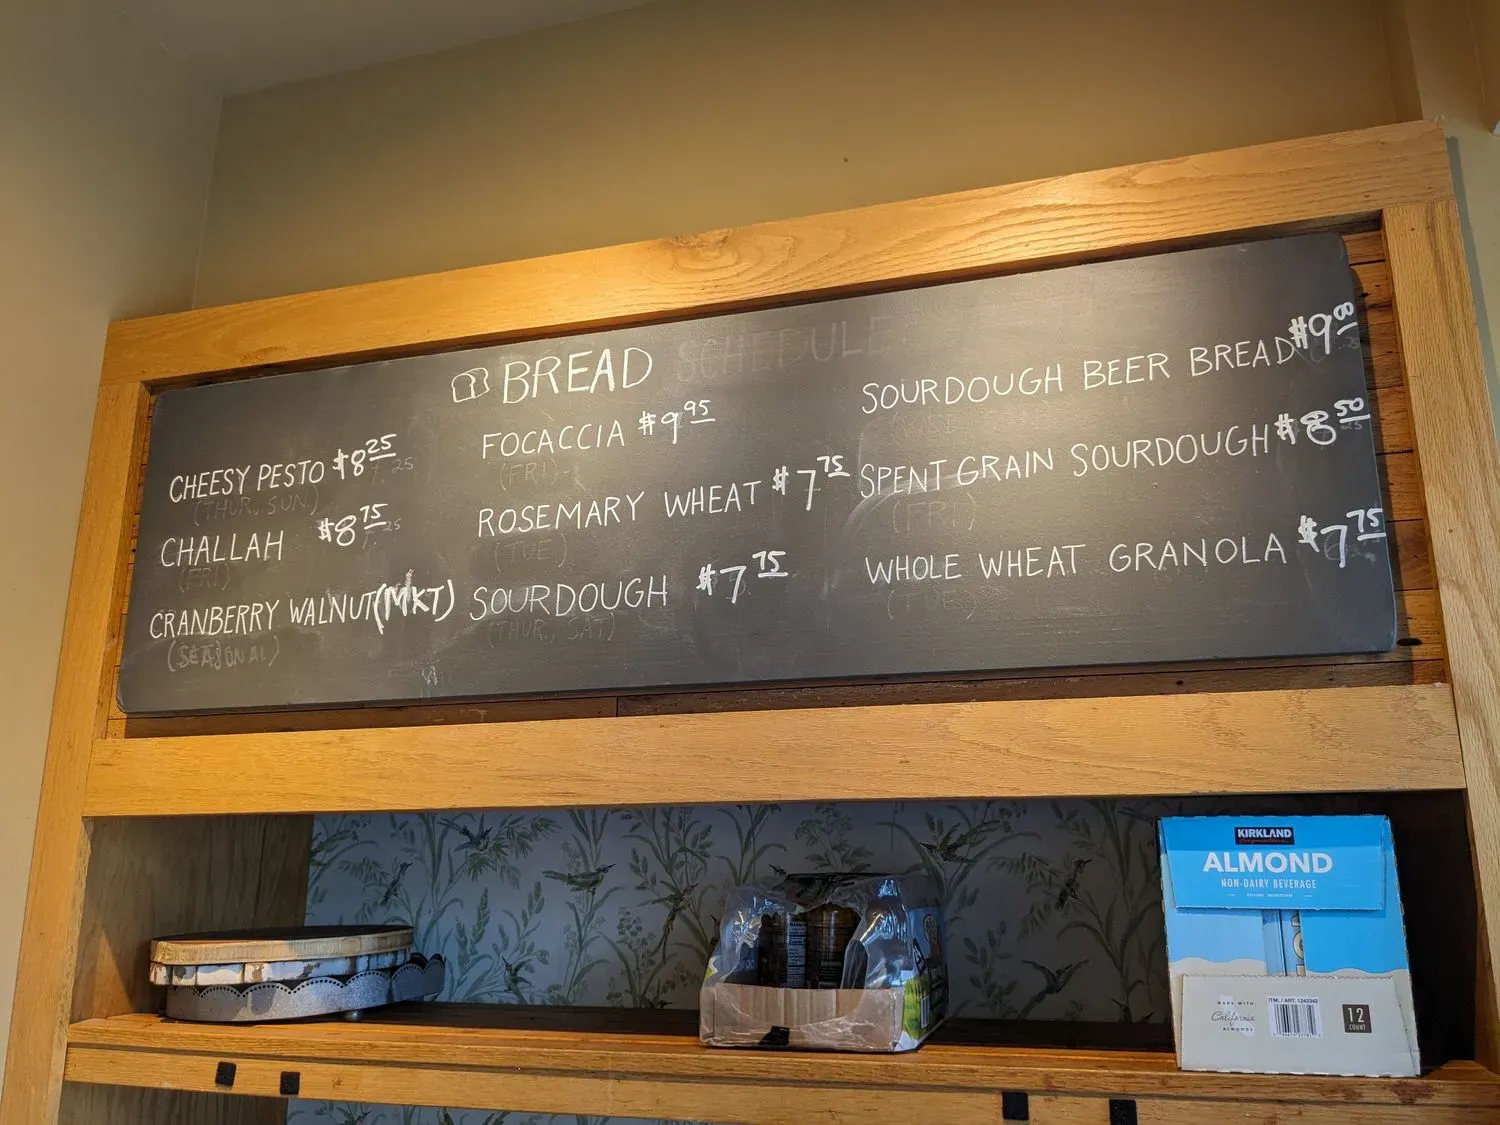 BREAD SCHEDULE
CHEESY PESTO $8.25
(THUR, SUN)
CHALLAH $8.75
(FRI)
CRANBERRY WALNUT (MKT)
(SEASONAL)
FOCACCIA $9.95
(FRI)
ROSEMARY WHEAT $7.75
(TUE)
SOURDOUGH $7.75
(THUR, SAT)
SOURDOUGH BEER BREAD $9.00
SPENT GRAIN SOURDOUGH $8.50
(FRI)
WHOLE WHEAT GRANOLA $7.75
(TUE)
KIRKLAND
Signature
ALMOND
NON-DAIRY BEVERAGE
MADE WITH
California
ALMONDS
ITM. / ART. 1242342
12
COUNT